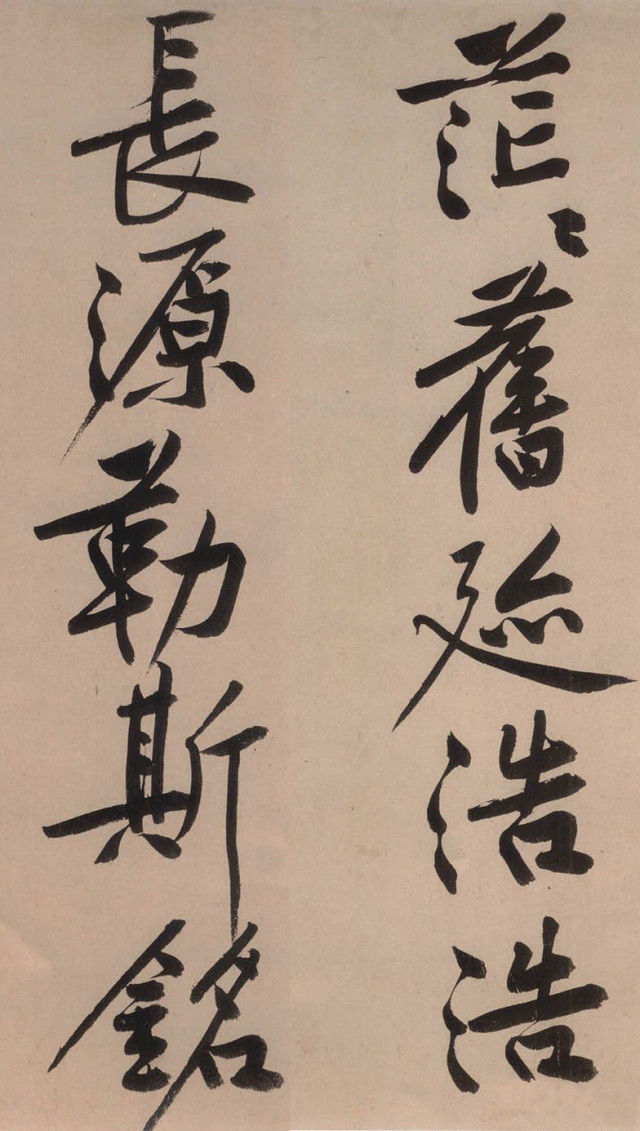 茫々舊迹浩浩
長源勒斯銘